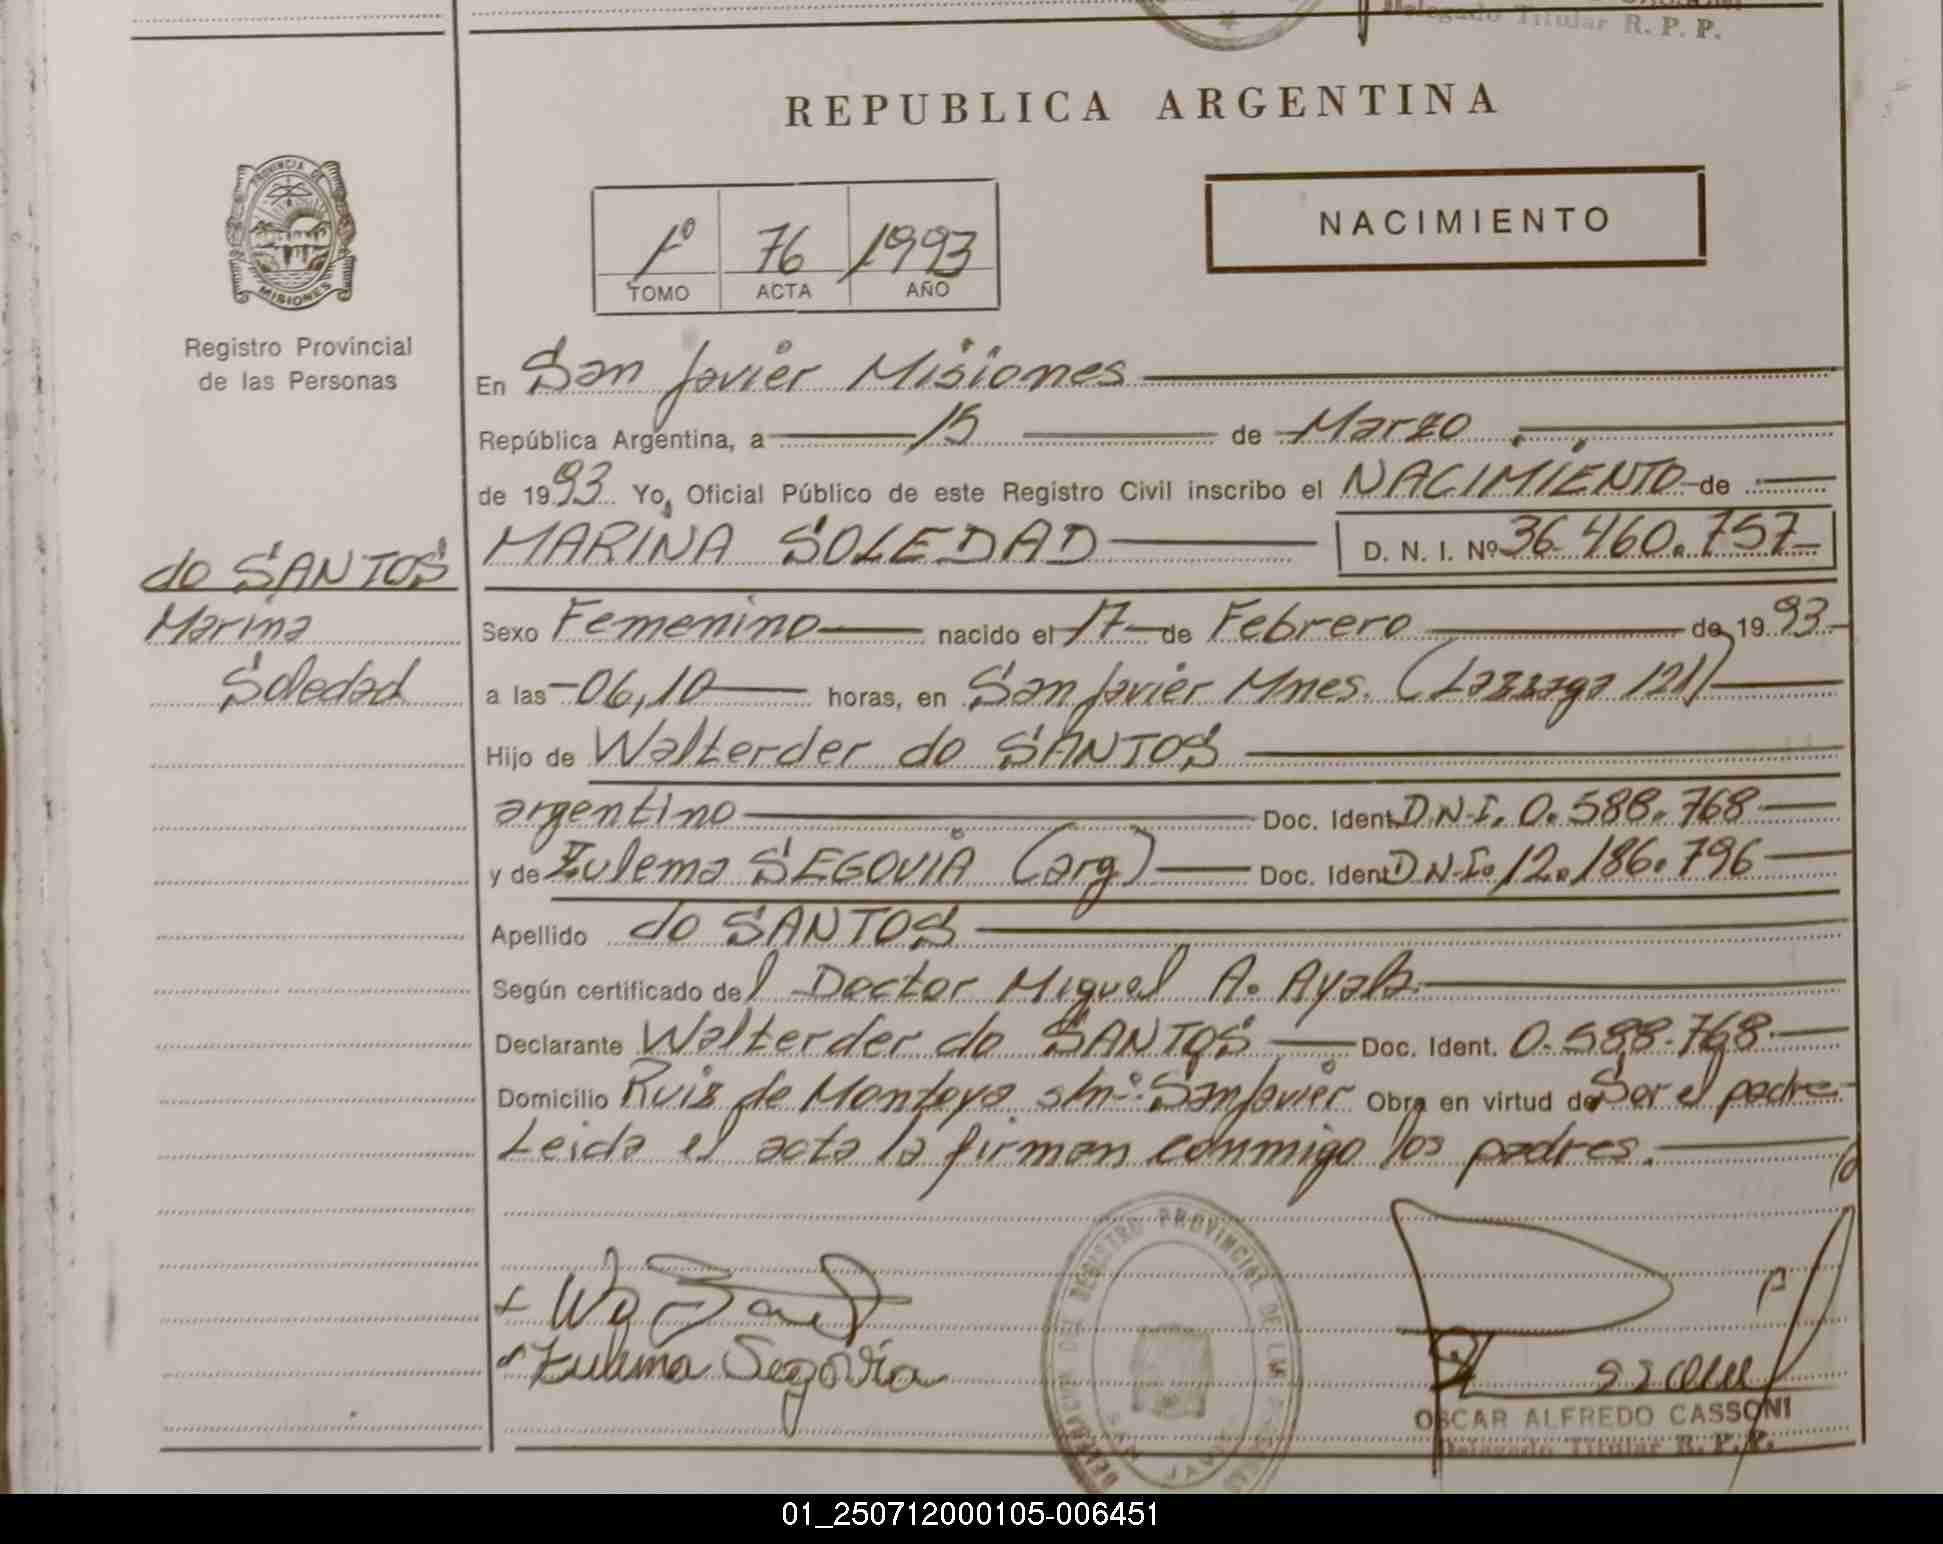 Delegado Titular R. P. P.
REPUBLICA ARGENTINA
PROVINCIA DE
MISIONES
Registro Provincial
de las Personas
1º 76 1993
TOMO ACTA AÑO
NACIMIENTO
En San Javier Misiones
República Argentina, a 15 de Marzo
de 1993 Yo, Oficial Público de este Registro Civil inscribo el NACIMIENTO de
do SANTOS
Marina
Soledad
MARINA SOLEDAD D. N. I. Nº 36.460.757
Sexo Femenino nacido el 17 de Febrero de 1993
a las 06,10 horas, en San Javier Mnes. (Lazzaga 121)
Hijo de Walterder do SANTOS
argentino Doc. Ident D.N.I. 0.588.768
y de Zulema SEGOVIA (arg) Doc. Ident D.N.I. 12.186.796
Apellido do SANTOS
Según certificado del Doctor Miguel A. Ayala
Declarante Walterder do SANTOS Doc. Ident. 0.588.768
Domicilio Ruiz de Montoya s/nº San Javier Obra en virtud de Ser el padre
Leida el acta la firman conmigo los padres.
Zulema Segovia
DELEGACION DEL REGISTRO PROVINCIAL DE LAS
SAN JAVIER
OSCAR ALFREDO CASSONI
Delegado Titular R. P. P.
01_250712000105-006451